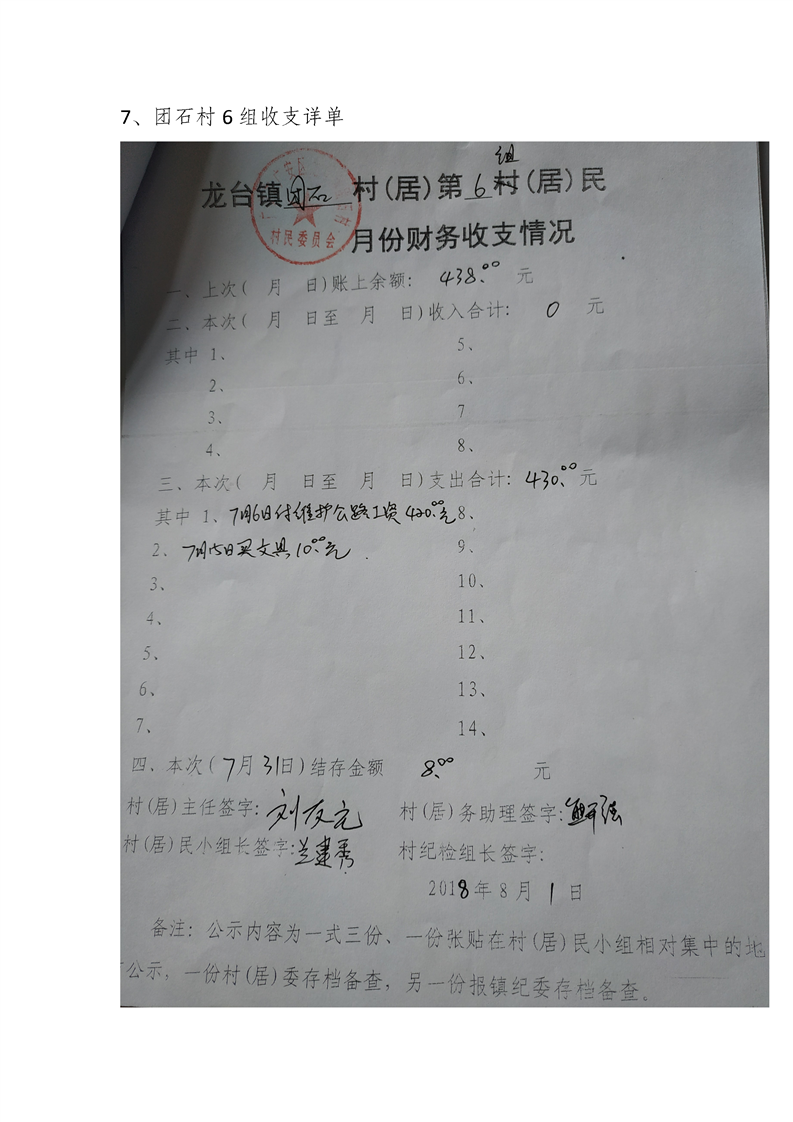 7、团石村 6 组收支详单
组
龙台镇团石村(居)第6村(居)民
村民委员会
月份财务收支情况
一、上次( 月 日)账上余额: 438.00 元
二、本次( 月 日至 月 日)收入合计: 0 元
其中 1、 5、
2、 6、
3、 7
4、 8、
三、本次( 月 日至 月 日)支出合计: 430.00元
其中 1、7月6日付维护公路工资420.00元 8、
2、7月15日买文具10.00元 9、
3、 10、
4、 11、
5、 12、
6、 13、
7、 14、
四、本次(7月31日)结存金额 8.00 元
村(居)主任签字:刘友元 村(居)务助理签字:
村(居)民小组长签字:兰建秀 村纪检组长签字:
2018年8月1日
备注: 公示内容为一式三份、一份张贴在村(居)民小组相对集中的地
公示, 一份村(居)委存档备查, 另一份报镇纪委存档备查。